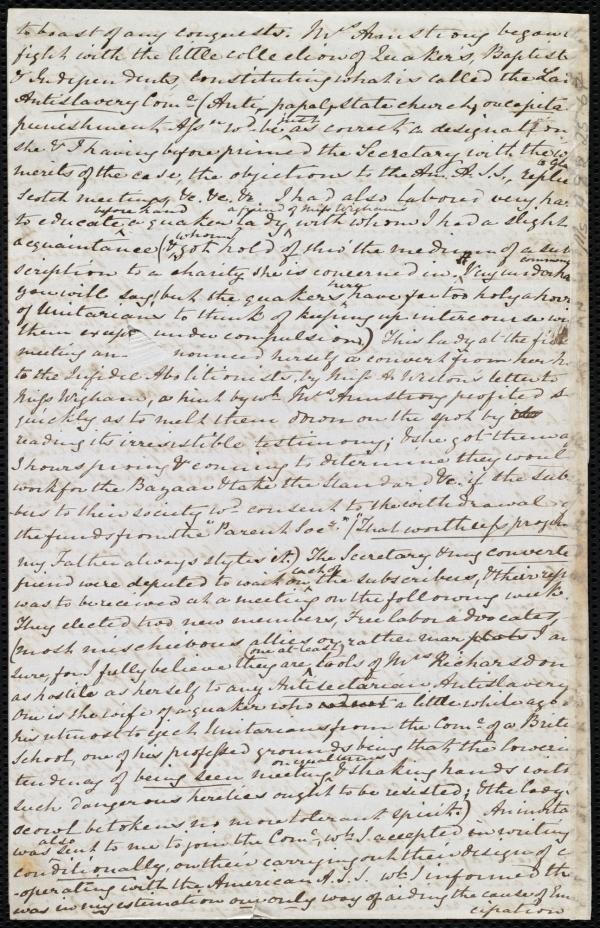 to boast of any conquests. Mrs Armstrong began a
fight with the little collection of Quakers, Baptists
& Independents, constituting what is called the
Antislavery Come. (Anti, papal, state church, or capital
punishment Assn wd. be just as correct a designation,
she & I having before primed the Secretary with the
merits of the case, the objections to the Am. A. S. S., replies
scotch meetings, &c. &c. &c I had also labored very
to educate before hand a quaker lady, a friend of Miss Wighams with whom I had a slight
acquaintance (& whom I got hold of thro' the medium of a sub
scription to a charity she is concerned in.
you will say, but the quakers here have far too holy a horror
of Unitarians to think of keeping up intercourse with
them except under compulsion.) This lady at the first
meeting announced herself a convert from her
to the Infidel Abolitionists by Miss A. Weston's letter to
Miss Wigham, a hint by wh. Mrs Armstrong profited so
quickly as to melt them down on the spot by
reading its irresistible testimony; & she got them
hours proing & conning to determine they would
work for the Bazaar & take the Standard &c. if the sub-
bers to their society wd. consent to the withdrawal of
the funds from the "Parent Socy." ("That worthless
my Father always styles it.) The Secretary & my converted
friend were deputed to wait on each of the subscribers, & their
was to be received at a meeting on the following week.
They elected two new members, Free labor advocates
(most mischievous allies or rather mar plots I am
sure, for I fully believe they are (one at least) tools of Mrs Richardson
as hostile as herself to any Antisectarian Antislavery
One is the wife of a quaker who a little while ago did
his utmost to eject Unitarians from the Come. of a British
School, one of his professed grounds being that the lowering
tendency of being seen meeting on equal terms & shaking hands with
such dangerous heretics ought to be resisted; & the lady's
scowl betokens no more tolerant spirit.) An invitation
was also sent to me to join the Come., wh. I accepted in writing
conditionally, on their carrying out their design of co
-operating with the American A. S. S. wh. I informed them
was in my estimation our only way of aiding the cause of Eman
cipation